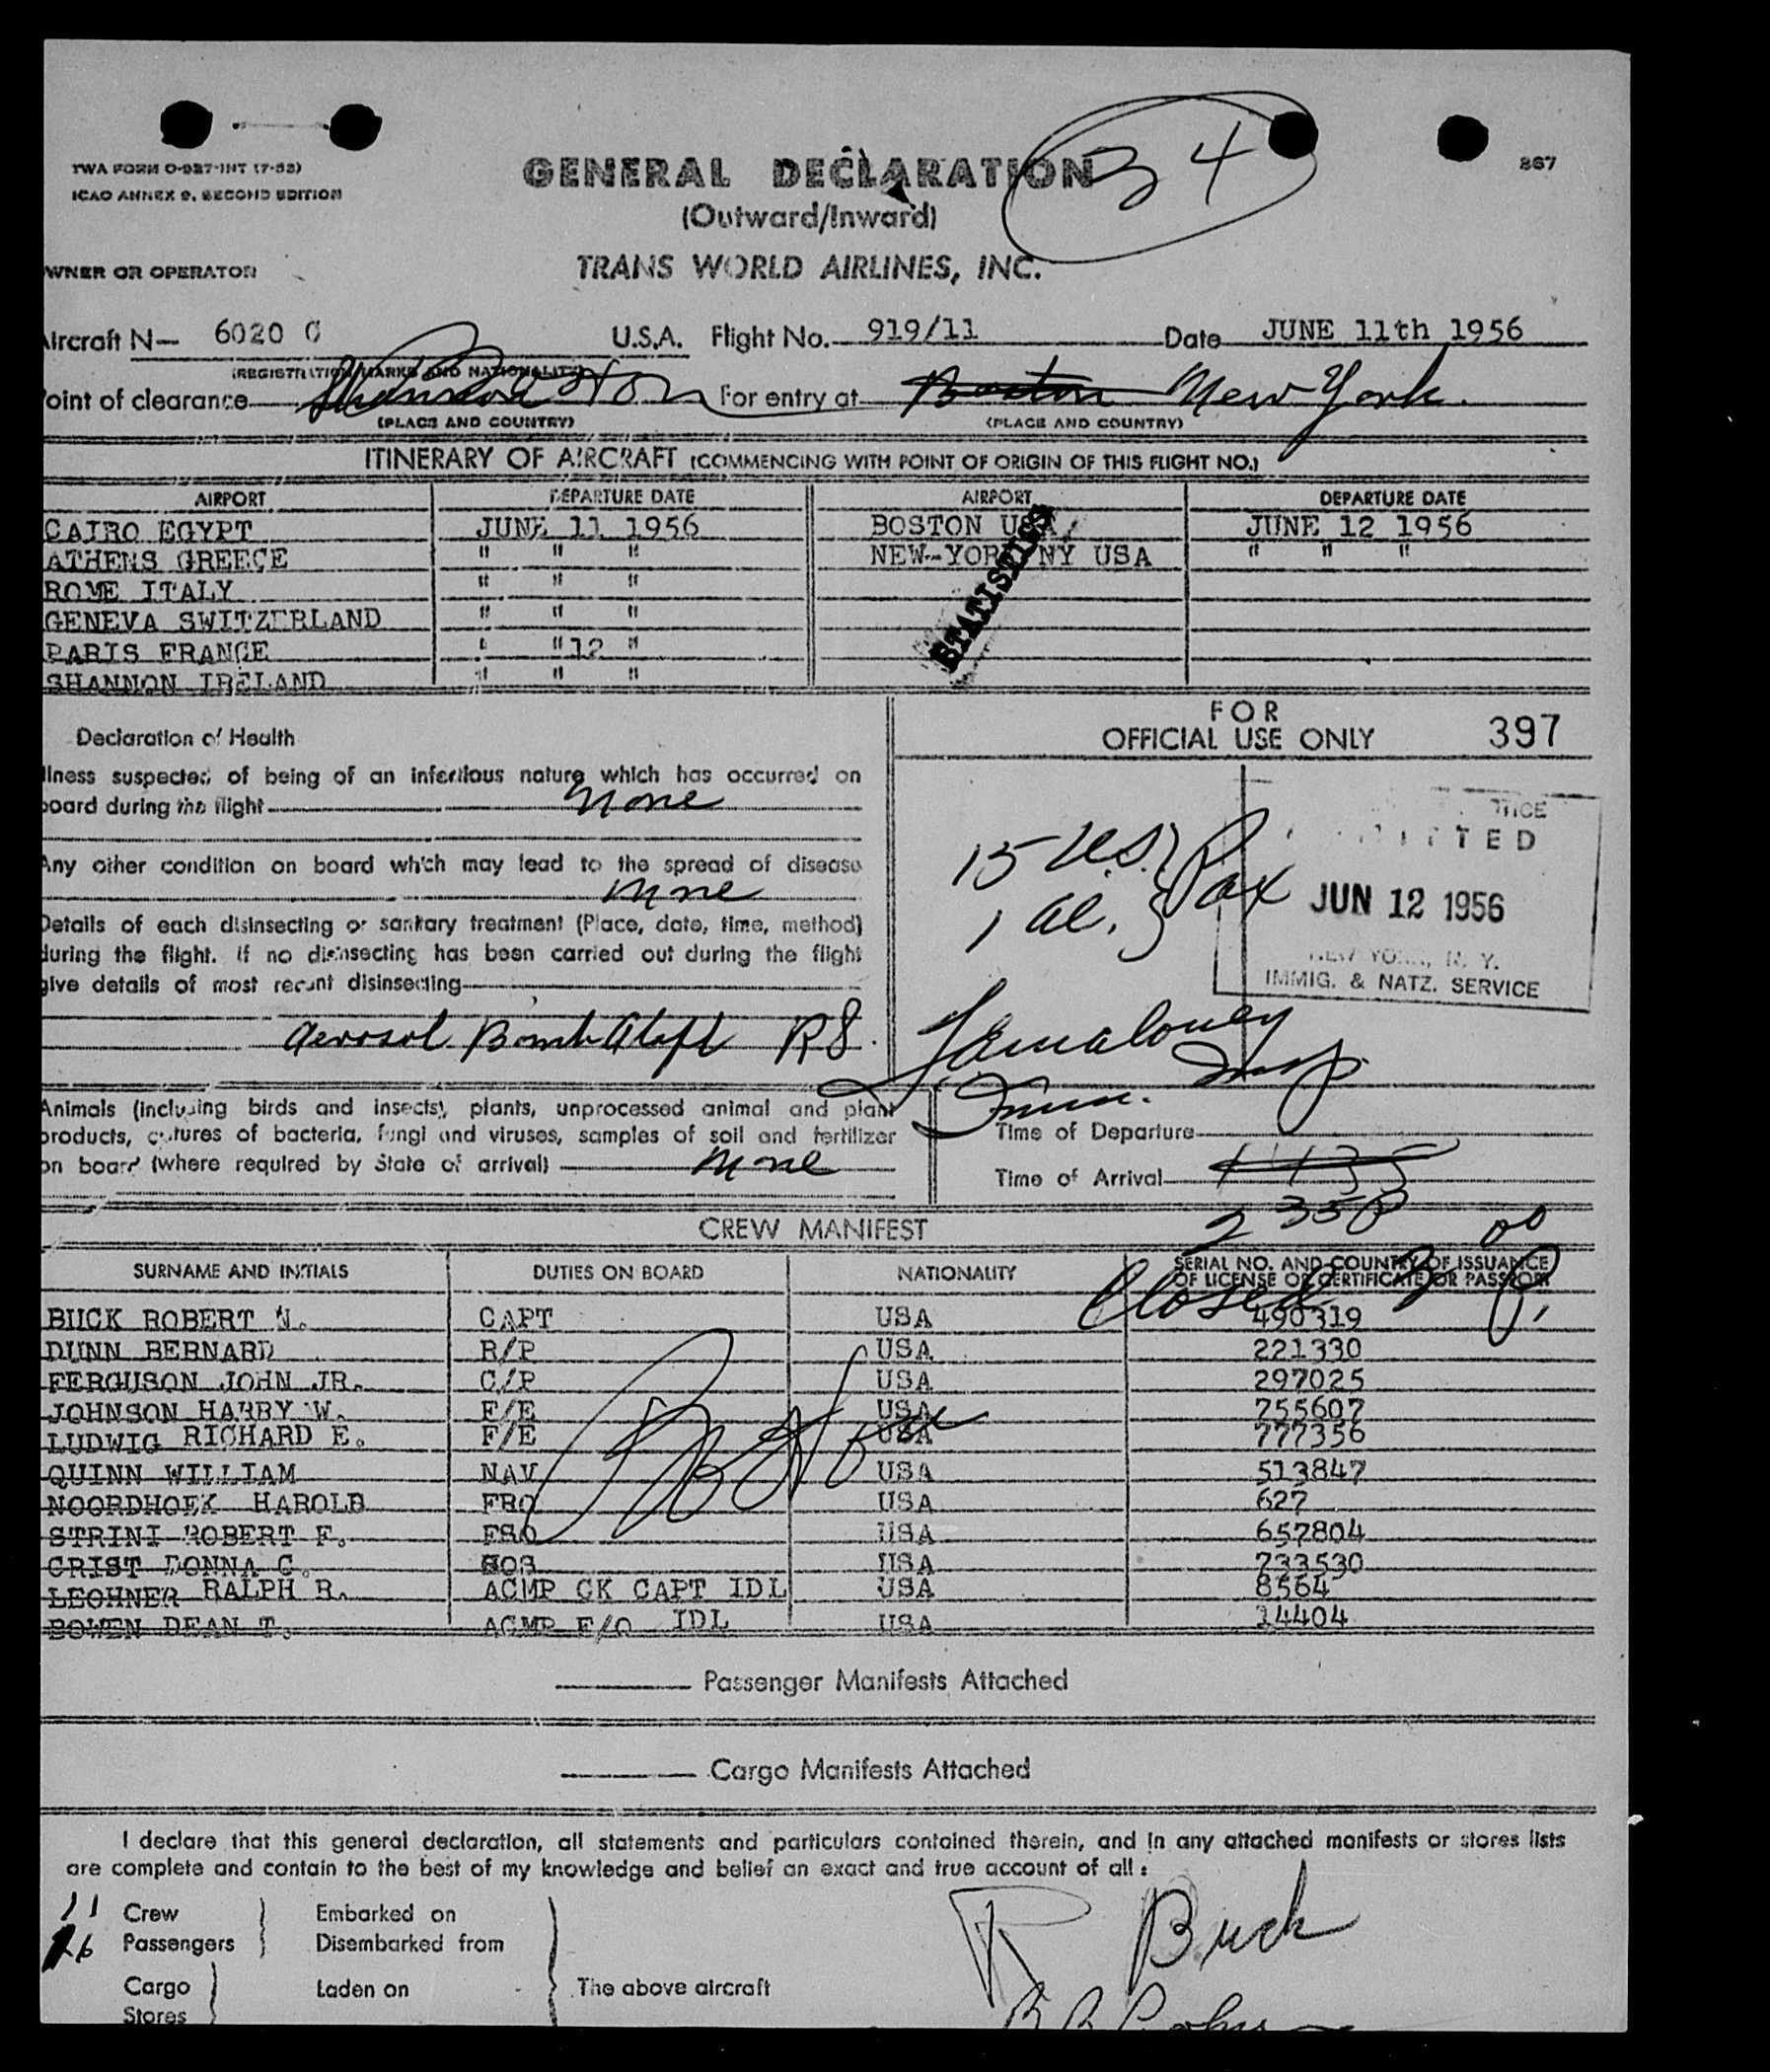 TWA FORM O-927-INT (7-53)
ICAO ANNEX 9, SECOND EDITION
GENERAL DECLARATION
34
867
(Outward/Inward)
WNER OR OPERATOR
TRANS WORLD AIRLINES, INC.
Aircraft N— 6020 C U.S.A. Flight No. 919/11 Date JUNE 11th 1956
(REGISTRATION MARKS AND NATIONALITY)
oint of clearance Shannon For entry at Boston New York.
(PLACE AND COUNTRY) (PLACE AND COUNTRY)
ITINERARY OF AIRCRAFT (COMMENCING WITH POINT OF ORIGIN OF THIS FLIGHT NO.)
AIRPORT DEPARTURE DATE AIRPORT DEPARTURE DATE
CAIRO EGYPT JUNE 11 1956 BOSTON USA JUNE 12 1956
ATHENS GREECE " " " NEW-YORK NY USA " " "
ROME ITALY " " "
GENEVA SWITZERLAND " " "
PARIS FRANCE " "12 "
SHANNON IRELAND " " "
STATISTICS
FOR
OFFICIAL USE ONLY 397
Declaration of Health
llness suspected of being of an infectious nature which has occurred on
board during the flight none
Any other condition on board which may lead to the spread of disease
none
Details of each disinsecting or sanitary treatment (Place, date, time, method)
during the flight. If no disinsecting has been carried out during the flight
give details of most recent disinsecting
Aerosol Bomb Aloft R8.
15 US.
1 al. } Pax
TTED
JUN 12 1956
NEW YORK, N. Y.
IMMIG. & NATZ. SERVICE
Maloney
Imm. Insp.
Animals (including birds and insects), plants, unprocessed animal and plant
products, cultures of bacteria, fungi and viruses, samples of soil and fertilizer
on board (where required by State of arrival) none
Time of Departure
Time of Arrival 1435
2 35 P
CREW MANIFEST
Closed 3 00 P.
SURNAME AND INITIALS DUTIES ON BOARD NATIONALITY SERIAL NO. AND COUNTRY OF ISSUANCE
OF LICENSE OR CERTIFICATE OR PASSPORT
BUCK ROBERT N. CAPT USA 490319
DUNN BERNARD R/P USA 221330
FERGUSON JOHN JR. C/P USA 297025
JOHNSON HARRY W. F/E USA 755607
LUDWIG RICHARD E. F/E USA 777356
QUINN WILLIAM NAV USA 513847
NOORDHOEK HAROLD FRO USA 627
STRINI ROBERT F. FSO USA 657804
CRIST DONNA C. HOS USA 733530
LECHNER RALPH R. ACMP CK CAPT IDL USA 8564
BOWEN DEAN T. ACMP F/O IDL USA 14404
Passenger Manifests Attached
Cargo Manifests Attached
I declare that this general declaration, all statements and particulars contained therein, and in any attached manifests or stores lists
are complete and contain to the best of my knowledge and belief an exact and true account of all :
11 Crew Embarked on
16 Passengers Disembarked from
R Buck
Cargo Laden on The above aircraft
Stores